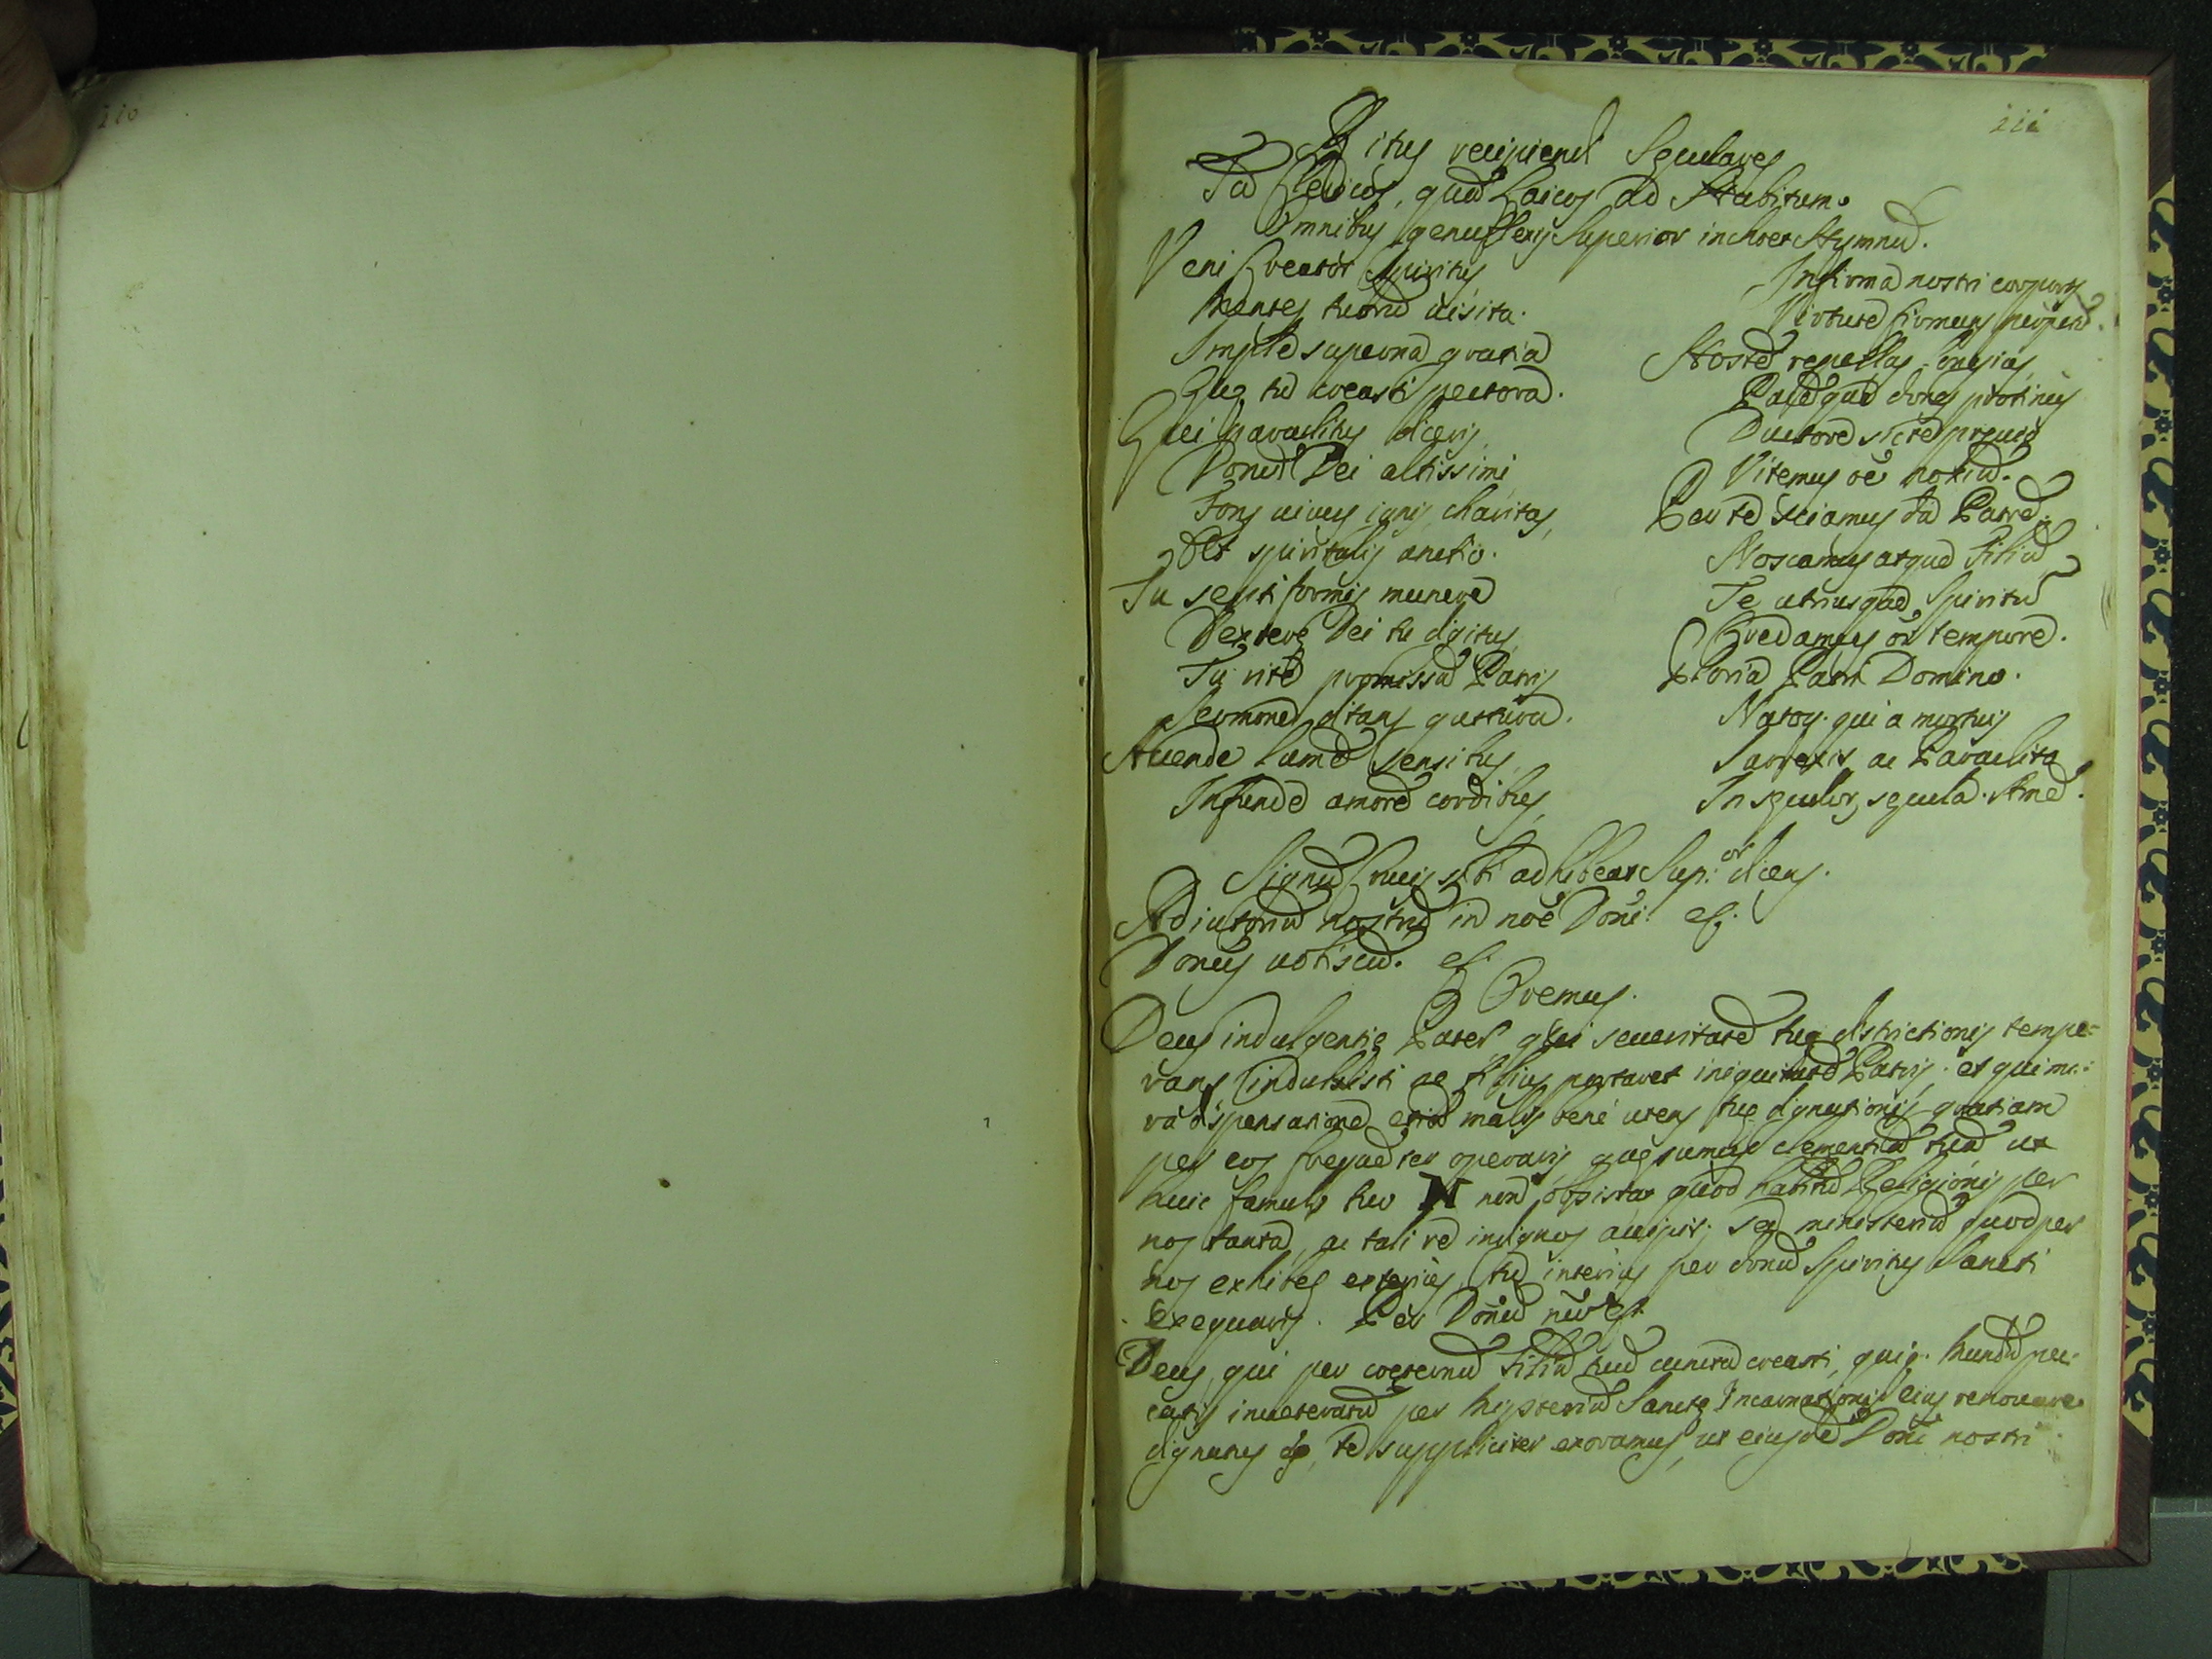 110
111
Ritus recipiendi Sęculares
Tā Clericos, quā Laicos ad Habitum.
Omnibus genuflexis Superior inchoet Hymnū.
Veni Creator Spiritus,
Mentes tuorū uisita.
Imple superna gratia
Quę tu creasti pectora.
Qui Paraclitus diceris,
Donū Dei altissimi,
Fons uiuus ignis charitas,
Et spiritalis unctio.
Tu septiformis munere
Dexterę Dei tu digitus,
Tu rite promissū Patris
Sermone ditans guttura.
Accende lumē sensibus,
Infunde amorē cordibus,
Infirma nostri corporis
Virtute firmans perpeti.
Hostē repellas longius,
Pacēque dones protinus
Ductore sic te pręuio
Vitemus oē noxiū.
Per te sciamus da Patrē,
Noscamus atque Filiū,
Te utriusque Spiritū
Credamus oī tempore.
Gloria Patri Domino.
Natoq. qui a mortuis
Surrexit, ac Paraclito
In sęculor, sęcula. Amē.
Signū Crucis sibi adhibeat Sup.or dicens.
Adiutoriū nostrū in noē Doni. &.
Donus uobiscū. &.
Oremus.
Deus indulgentię Pater qui seueritatē tuę districtionis tempe=
rans, indulsisti ne filius portaret iniquitatē Patris. et qui mi=
ra dispensatione, etiā malis bene utens tuę dignationis gratiam
per eos frequēter operaris, quęsumus clementiā tuā ut
huic famulo tuo N non obsistat quod habitū Religionis per
nos tanta, ac tali re indignos accipit; sed ministeriū quod per
nos exhibes exterius, tu interius per donū Spiritus Sancti
exequaris. Per Donū nrū &
Deus, qui per coęternū Filiū tuū cuncta creasti, quiq. Mundū pec=
catis inueteratū per Mysteriū Sanctę Incarnationis eius renouare
dignatus es, te suppliciter exoramus, ut eiusdē Doni nostri